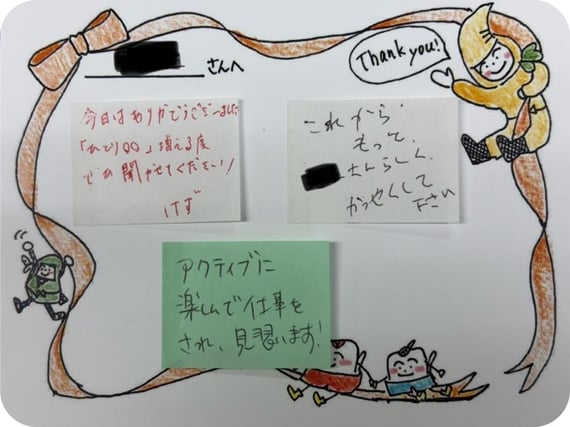 さんへ
Thank you!
今日はありがとうございました
「ひとり〇〇」増える度
でひ聞かせてください!
けず
これから
もって、
さんらしく、
かつやくして
下さい
アクティブに
楽しんで仕事を
され、見習います!